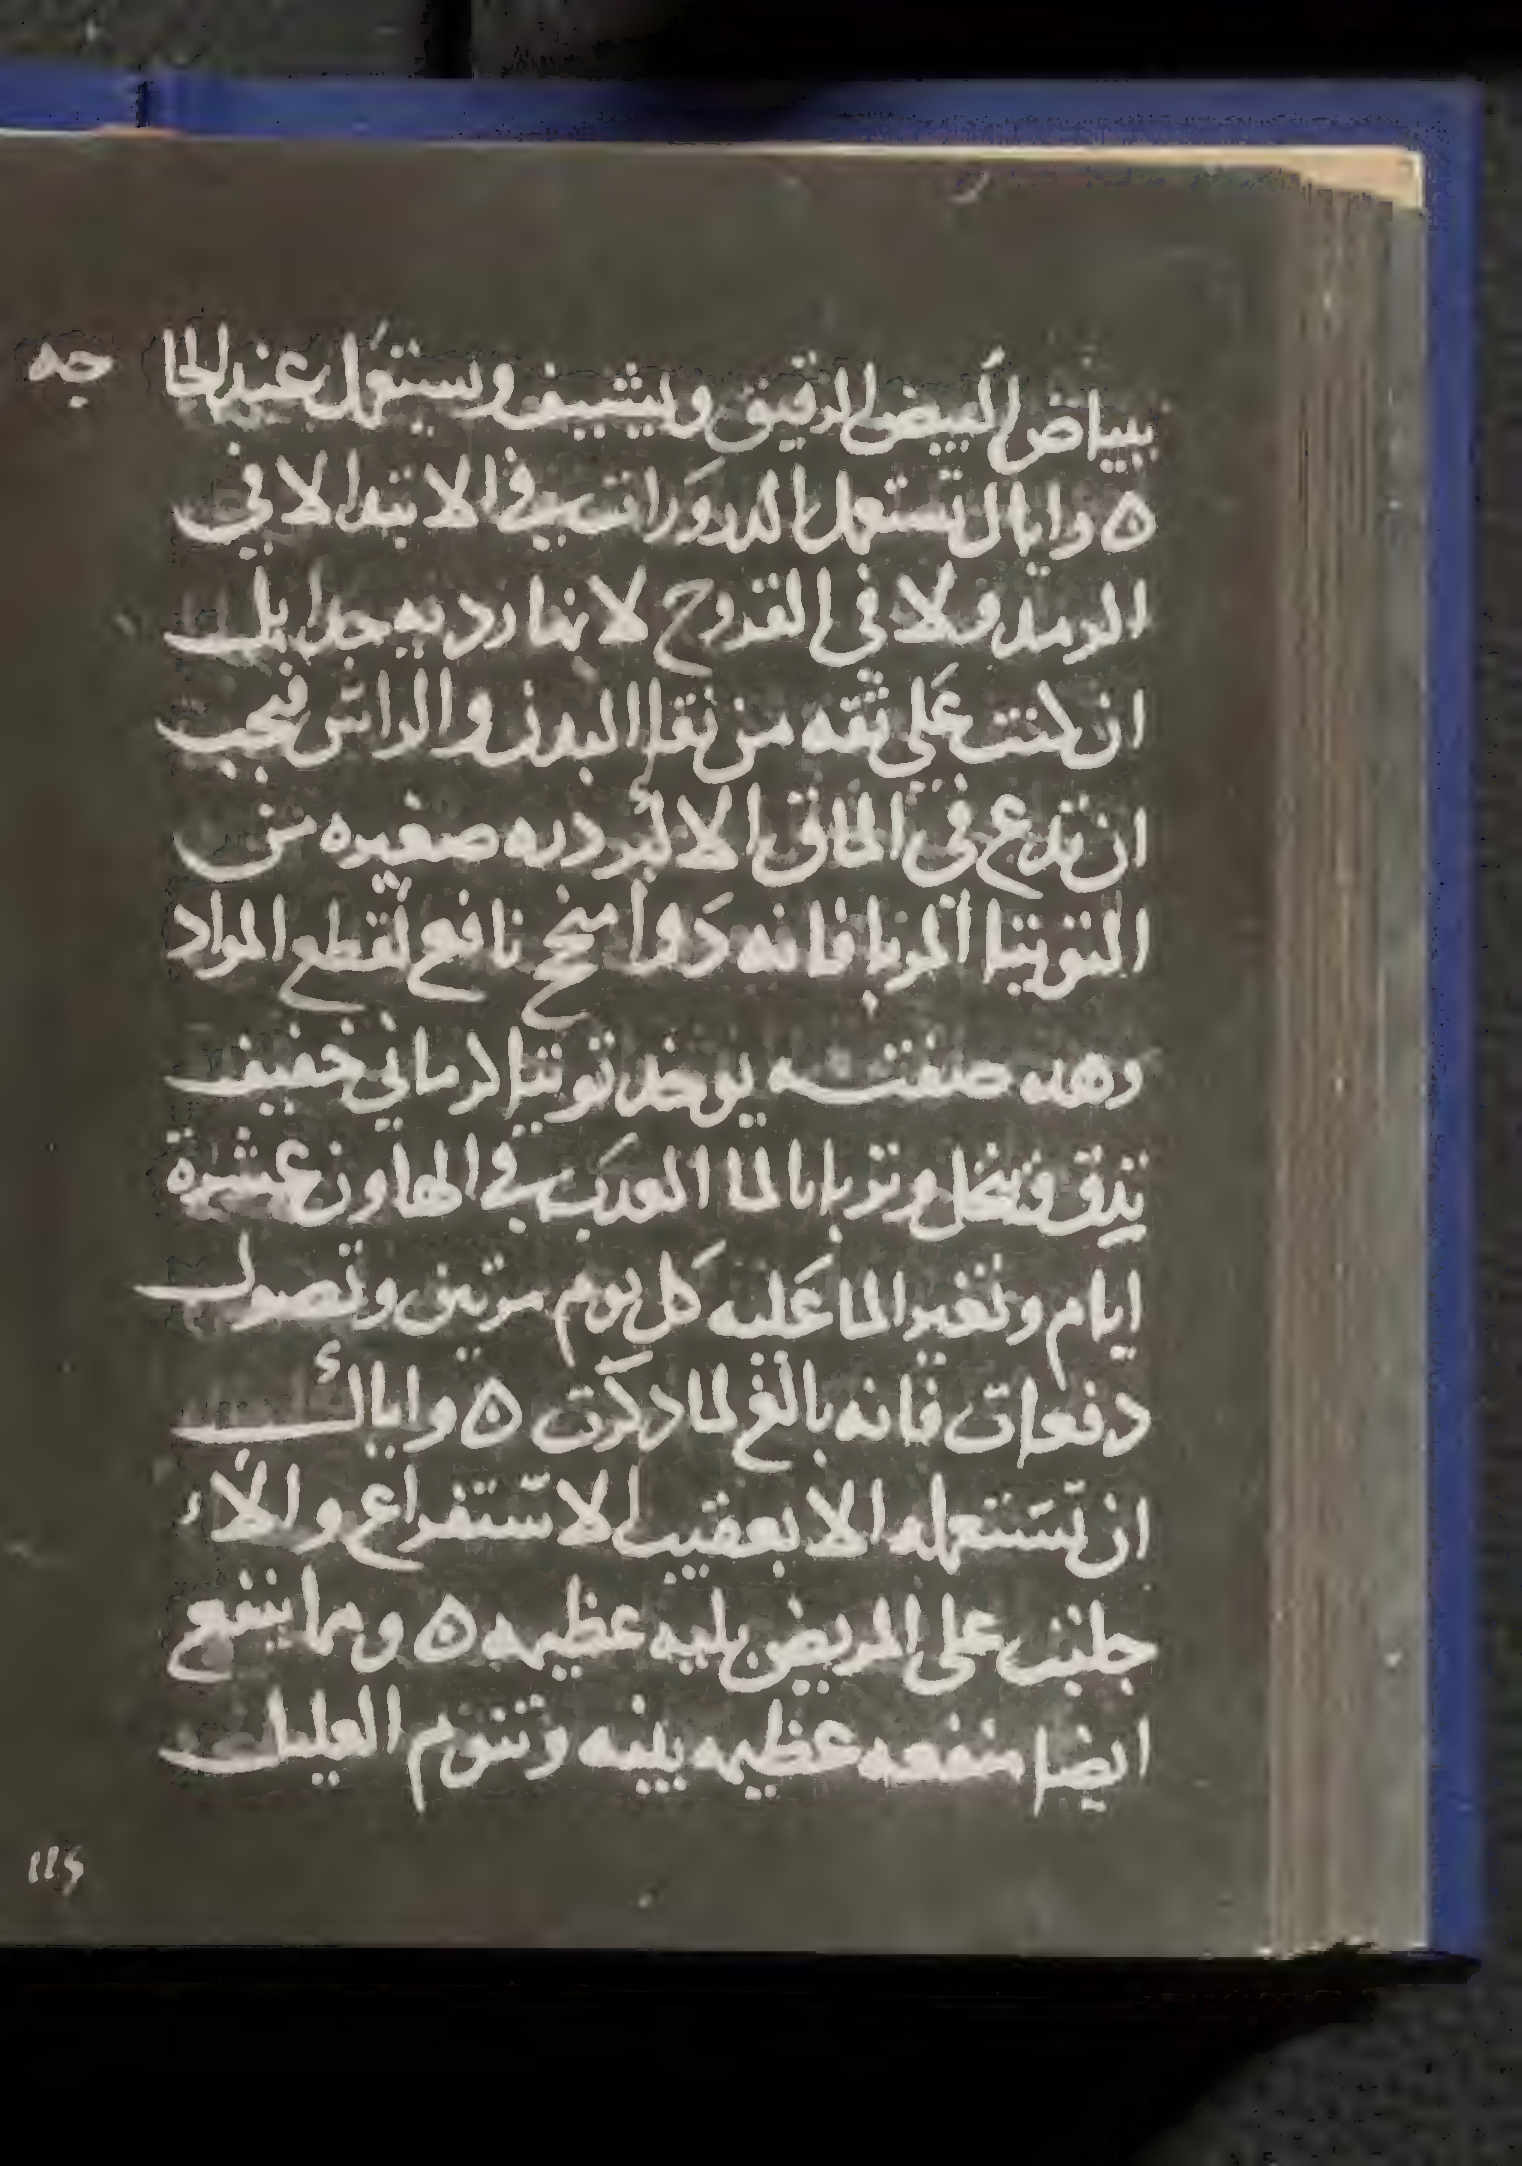 ببياض البيض الرقيق ويشيف ويستعمل عند الحاجه
ه واياك تستعمل الدرورات في الابتدا لا في
الرمد ولا في القروح لانها رديه جدا بل
ان كنت علي ثقه من نقا البدن والراس فيجب
ان تدع في الماق الاكبر دره صغيره من
التوتيا المربا فانه دوا منجح نافع لقطع المواد
وهده صفته يوخد توتيا كرماني خفيف
تدق وتنخل وتربا بالما العدب في الهاون عشرة
ايام وتغير الما عليه كل يوم مرتين وتصول
دفعات فانه بالغ لما دكرت ه واياك
ان تستعمله الا بعقيب الاستفراغ والا
جلبت علي المريض بليه عظيمه ه ومما ينفع
ايضا منفعه عظيمه بينه وتنوم العليل